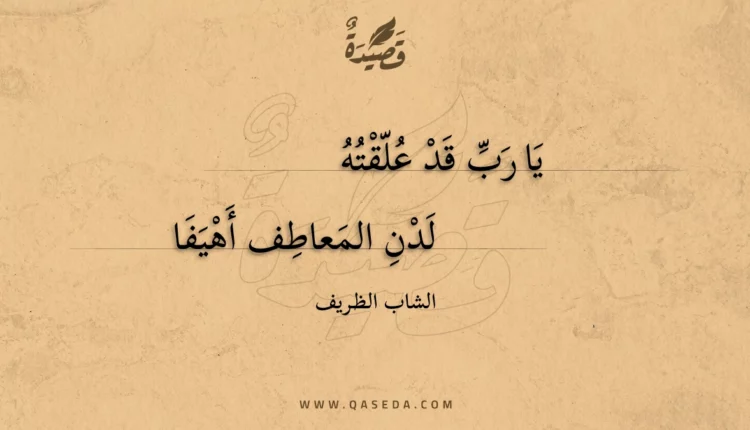 قَصِيْدَةٌ
يَا رَبِّ قَدْ عُلّقْتُهُ
لَدْنِ المَعاطِف أَهْيَفَا
الشاب الظريف
WWW.QASEDA.COM